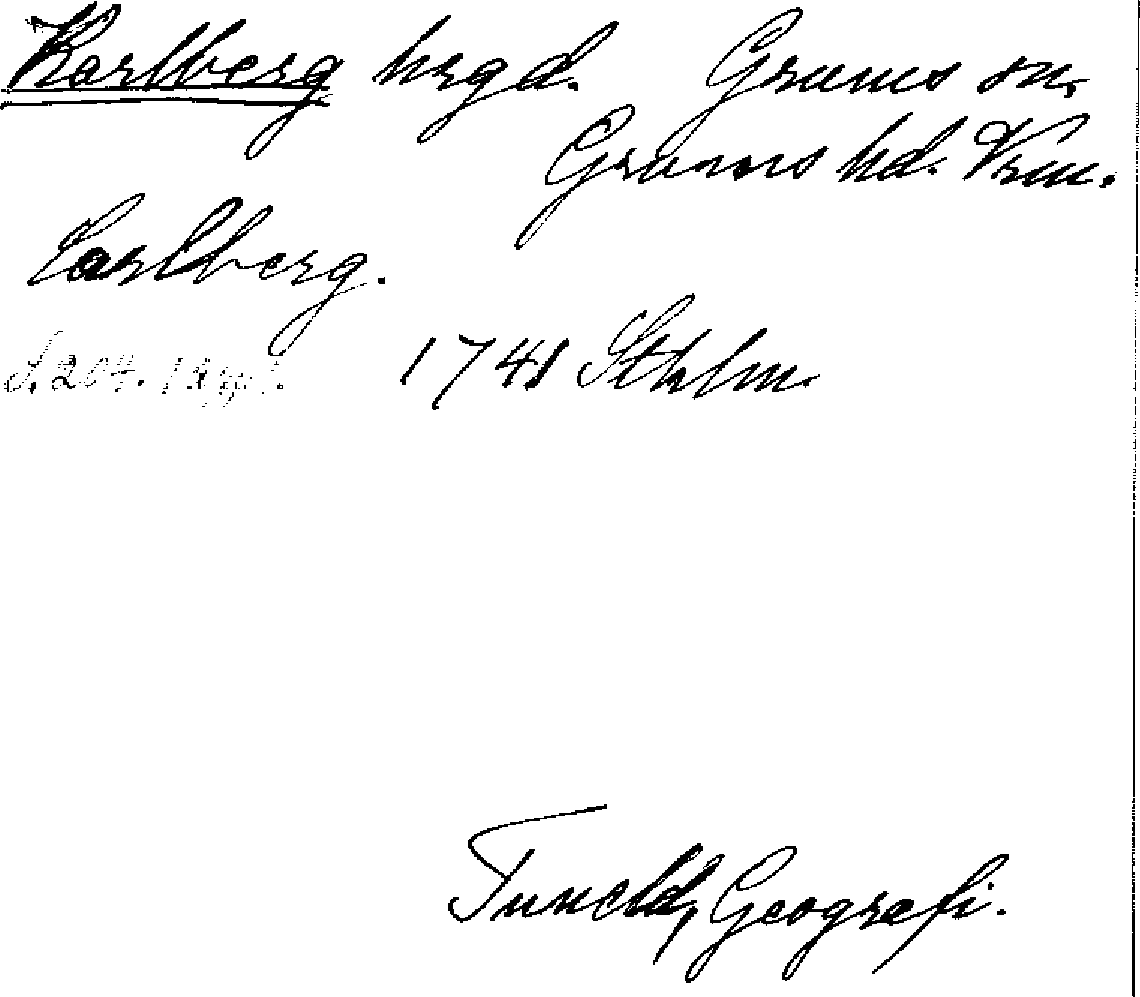 Karlberg hrgd. Grums sn.
Grums hd. Vrm.
Carlberg.
S. 204. 1741 Sthlm.
Tuneld, Geografi.